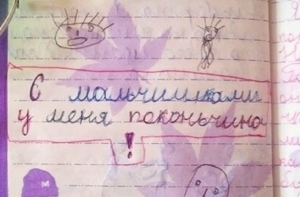 С мальчишками
у меня поконьчина
!